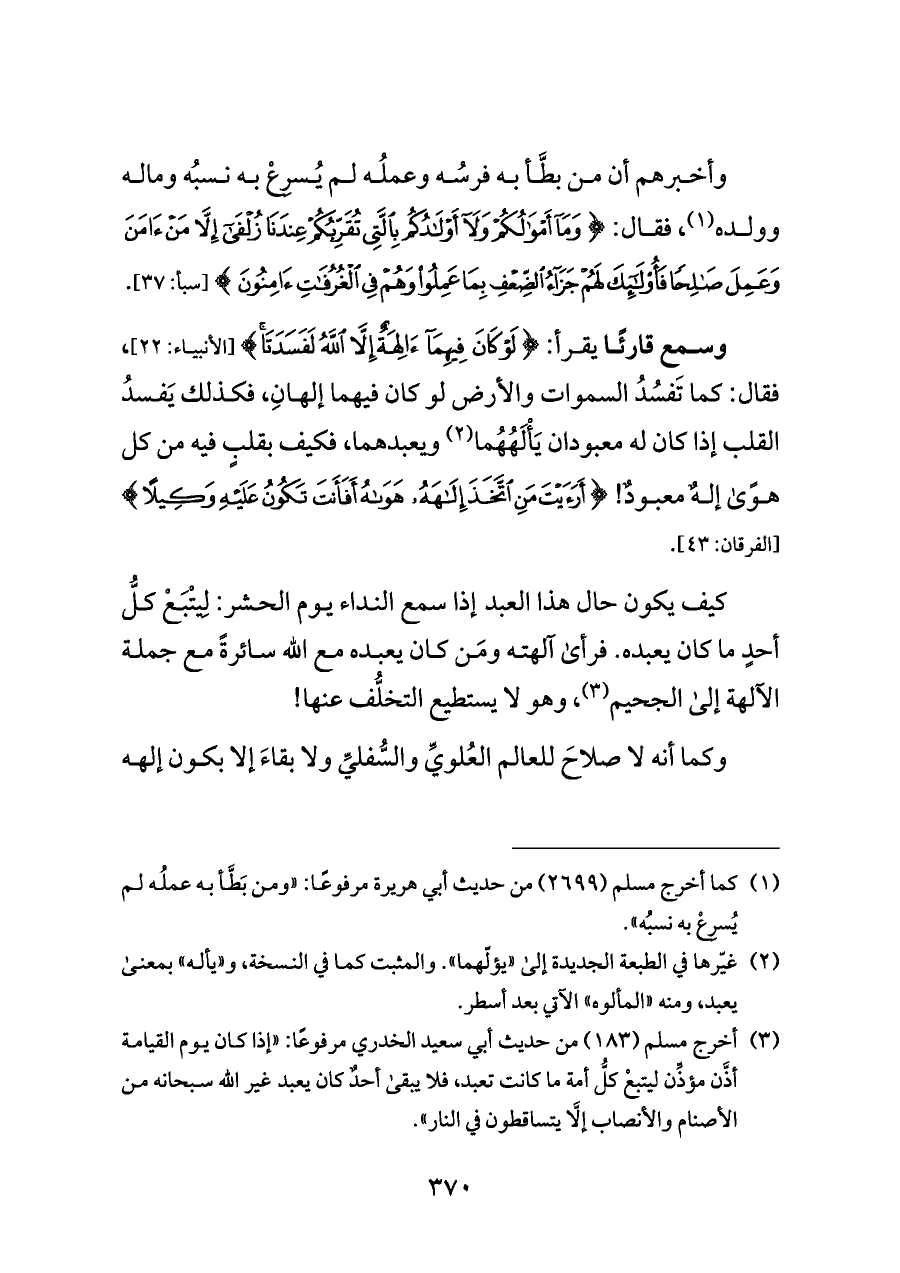 وأخبرهم أن من بطَّأ به فرسُه وعملُه لم يُسرِعْ به نسبُه وماله
وولده(١)، فقال: ﴿ وَمَآ أَمْوَٰلُكُمْ وَلَآ أَوْلَٰدُكُم بِٱلَّتِى تُقَرِّبُكُمْ عِندَنَا زُلْفَىٰٓ إِلَّا مَنْ ءَامَنَ
وَعَمِلَ صَٰلِحًا فَأُو۟لَٰٓئِكَ لَهُمْ جَزَآءُ ٱلضِّعْفِ بِمَا عَمِلُوا۟ وَهُمْ فِى ٱلْغُرُفَٰتِ ءَامِنُونَ ﴾ [سبأ: ٣٧].
وسمع قارئًا يقرأ: ﴿ لَوْ كَانَ فِيهِمَآ ءَالِهَةٌ إِلَّا ٱللَّهُ لَفَسَدَتَا ۚ ﴾ [الأنبياء: ٢٢]،
فقال: كما تَفسُدُ السموات والأرض لو كان فيهما إلهانِ، فكذلك يَفسدُ
القلب إذا كان له معبودان يَأْلَهُهُما(٢) ويعبدهما، فكيف بقلبٍ فيه من كل
هوًىٰ إلهٌ معبودٌ! ﴿ أَرَءَيْتَ مَنِ ٱتَّخَذَ إِلَٰهَهُۥ هَوَىٰهُ أَفَأَنتَ تَكُونُ عَلَيْهِ وَكِيلًا ﴾
[الفرقان: ٤٣].
كيف يكون حال هذا العبد إذا سمع النداء يوم الحشر: لِيتْبَعْ كلُّ
أحدٍ ما كان يعبده. فرأىٰ آلهته ومَن كان يعبده مع الله سائرةً مع جملة
الآلهة إلىٰ الجحيم(٣)، وهو لا يستطيع التخلُّف عنها!
وكما أنه لا صلاحَ للعالم العُلويِّ والسُّفليِّ ولا بقاءَ إلا بكون إلهه
(١) كما أخرج مسلم (٢٦٩٩) من حديث أبي هريرة مرفوعًا: «ومن بَطَّأ به عملُه لم
يُسرِعْ به نسبُه».
(٢) غيّرها في الطبعة الجديدة إلىٰ «يؤلّهما». والمثبت كما في النسخة، و«يأله» بمعنىٰ
يعبد، ومنه «المألوه» الآتي بعد أسطر.
(٣) أخرج مسلم (١٨٣) من حديث أبي سعيد الخدري مرفوعًا: «إذا كان يوم القيامة
أذَّن مؤذِّن ليتبعْ كلُّ أمة ما كانت تعبد، فلا يبقىٰ أحدٌ كان يعبد غير الله سبحانه من
الأصنام والأنصاب إلَّا يتساقطون في النار».
٣٧٠